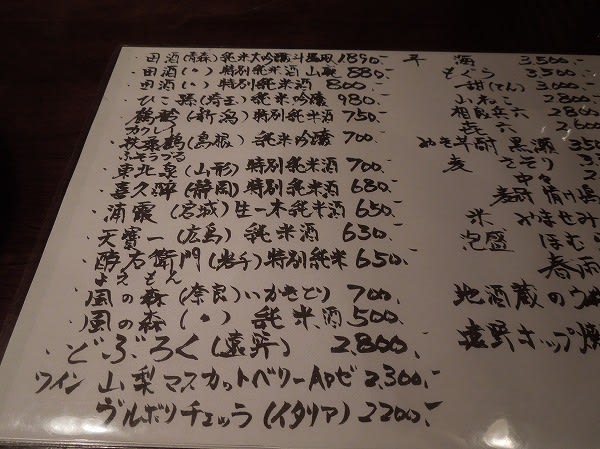 ・田酒(青森)純米大吟醸斗壜取 1890.-
・田酒(〃)特別純米酒 山廃 880.-
・田酒(〃)特別純米酒 800.-
・ひこ孫(埼玉)純米吟醸 980.-
・鶴齢(新潟)特別純米酒 750.-
カクレイ
・扶桑鶴(島根)純米吟醸 700.-
ふそうづる
・東北泉(山形)特別純米酒 700.-
・喜久酔(静岡)特別純米酒 680.-
・浦霞(宮城)生一本純米酒 650.-
・天寶一(広島)純米酒 630.-
・酔右衛門(岩手)特別純米 650.-
よえもん
・風の森(奈良)いかきとり 700.-
・風の森(〃)純米酒 500.-
・どぶろく(遠野) 2,800.-
ワイン 山梨マスカットベリーA 2,300.-
ヴルポリチェッラ(イタリア) 2200.-
芋 海 3,500.-
もぐら 3,500.-
甜(てん) 3,000.-
山ねこ 2800
相良兵六 2800
㐂六 2600
黒瀬 350
麦
中々
米
泡盛
春雨
地酒蔵のうめ
遠野ホップ焼